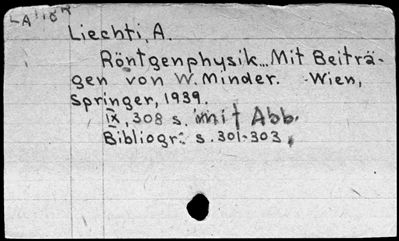 Liechti, A.
Röntgenphysik... Mit Beiträ-
gen von W. Minder. Wien,
Springer, 1939.
IX, 308 s. mit Abb.
Bibliogr: s. 301-303.